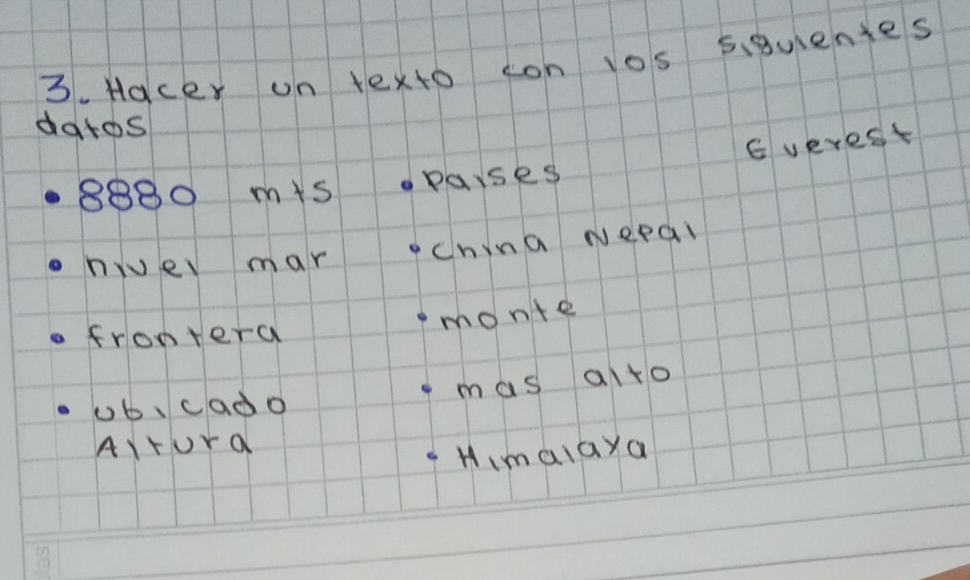 3. Hacer un texto con los siguientes
datos
• 8880 mts
• nivel mar
• frontera
• ubicado
Altura
• Paises
• China Nepal
• monte
• mas alto
• Himalaya
Everest